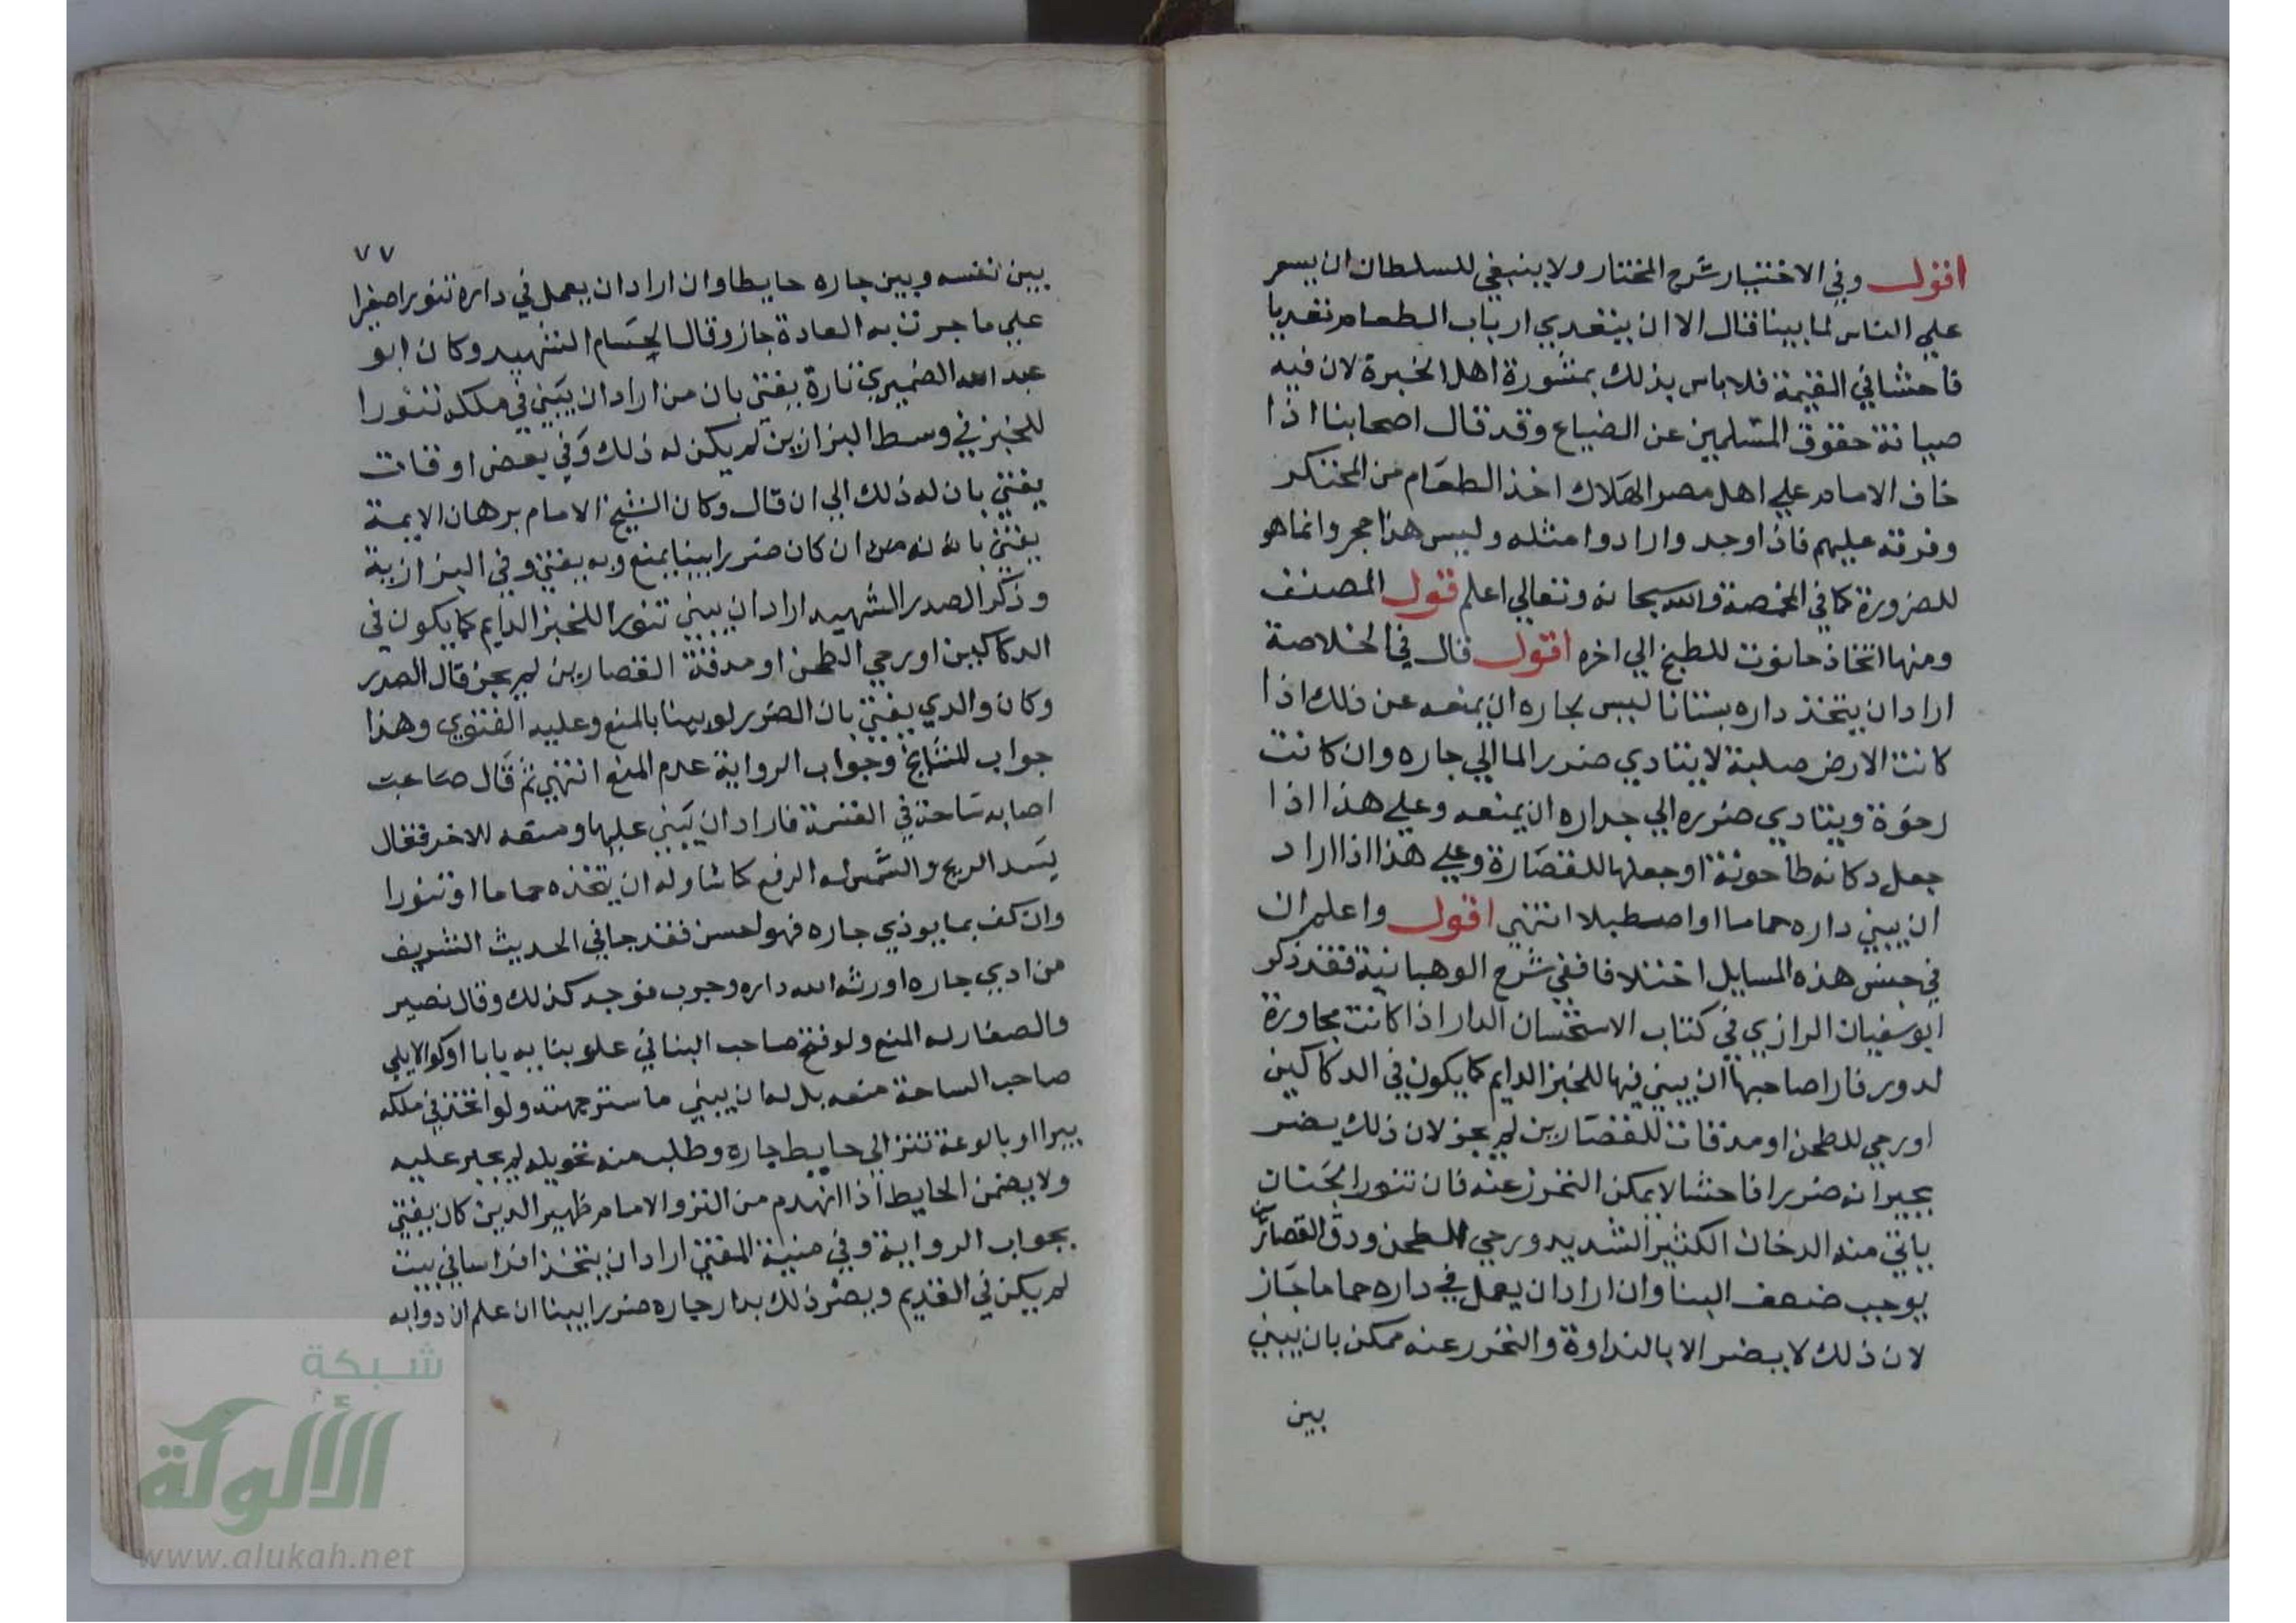 اقول وفي الاختيار شرح المختار ولا ينبغي للسلطان ان يسعر
علي الناس لما بينا قال الا ان يتعدي ارباب الطعام تعديا
فاحشا في القيمة فلا باس بذلك بمشورة اهل الخبرة لان فيه
صيانة حقوق المسلمين عن الضياع وقد قال اصحابنا اذا
خاف الامام علي اهل مصر الهلاك اخذ الطعام من المحتكر
وفرقه عليهم فاذا وجد وارادوا مثله وليس هذا حجر وانما هو
للضرورة كما في المخمصة والله سبحانه وتعالي اعلم قول المصنف
ومنها اتخاذ حانوت للطبخ الي اخره اقول قال في الخلاصة
اراد ان يتخذ داره بستانا ليس لجاره ان يمنعه عن ذلك اذا
كانت الارض صلبة لا يتادي ضرر الما الي جاره وان كانت
رخوة ويتادي ضرره الي جداره ان يمنعه وعلي هذا اذا
جعل دكانه طاحونة او جعلها للقصارة وعلي هذا اذا اراد
ان يبني داره حماما او اصطبلا انتهي اقول واعلم ان
في جنس هذه المسايل اختلافا ففي شرح الوهبانية فقد ذكر
ابو سفيان الرازي في كتاب الاستحسان الدار اذا كانت مجاورة
لدور فارا صاحبها ان يبني فيها للخبز الدايم كما يكون في الدكاكين
او رحي للطحن او مدقات للقصارين لم يجز لان ذلك يضر
بجيرانه ضررا فاحشا لا يمكن التحرز عنه فان تنور الخباز
ياتي منه الدخان الكثير الشديد ورحي للطحن ودق القصارين
يوجب ضعف البنا وان اراد ان يعمل في داره حماما جاز
لان ذلك لا يضر الا بالنداوة والتحرر عنه ممكن بان يبني
بين
٧٧
بين نفسه وبين جاره حايطا وان اراد ان يعمل في داره تنورا صغيرا
علي ما جرت به العادة جاز وقال الحسام الشهيد وكان ابو
عبد الله الضميري تارة يفتي بان من اراد ان يبني في ملكه تنورا
للخبز في وسط البزازين لم يكن له ذلك وفي بعض اوقات
يفتي بان له ذلك الي ان قال وكان الشيخ الامام برهان الايمة
يفتي بانه ان كان ضررا بينا يمنع وبه يفتي وفي البزازية
وذكر الصدر الشهيد اراد ان يبني تنورا للخبز الدايم كما يكون في
الدكاكين او رحي الطحن او مدقة القصارين لم يجز قال الصدر
وكان والدي يفتي بان الضرر لو بينا بالمنع وعليه الفتوي وهذا
جواب المشايخ وجواب الرواية عدم المنع انتهي ثم قال صاحب
اصابه ساحة في القسمة فاراد ان يبني عليها ومنعه الاخر فقال
يسد الريح والشمس له الرفع كما شا وله ان يتخذه حماما او تنورا
وان كف بما يوذي جاره فهو احسن فقد جا في الحديث الشريف
من ادي جاره اورثه الله داره وجرب فوجد كذلك وقال نصير
والصفار له المنع ولو فتح صاحب البنا في علو بنايه بابا او كوا لا يلي
صاحب الساحة منعه بل له ان يبني ما ستر جهته ولو اتخذ في ملكه
بيرا او بالوعة تنز الي حايط جاره وطلب منه تحويله لم يجبر عليه
ولا يضمن الحايط اذا انهدم من النز والامام ظهير الدين كان يفتي
بجواب الرواية وفي منية المفتي اراد ان يتخذ افراسا في بيت
لم يكن في القديم ويضر ذلك بدار جاره ضررا بينا ان علم ان دوابه
شبكة
الألوكة
www.alukah.net